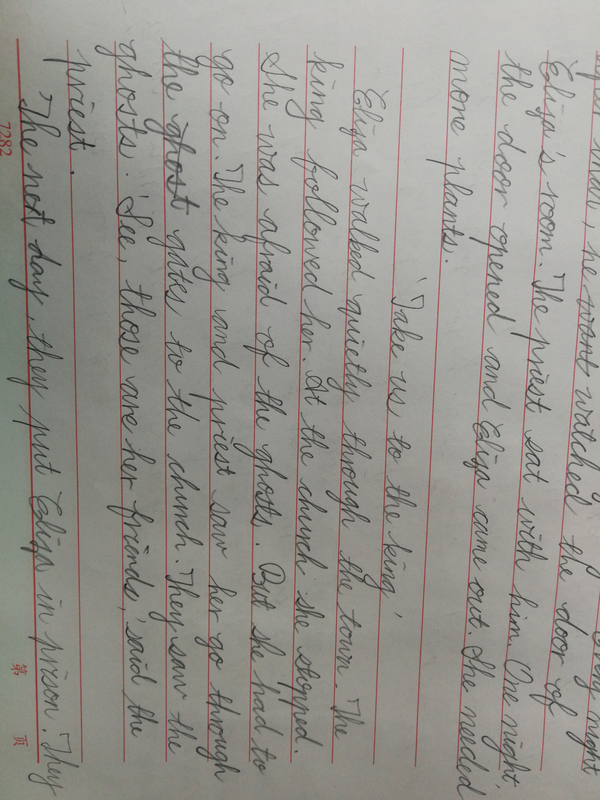 he went watched the door of
Eliza's room. The priest sat with him. One night,
the door opened and Eliza came out. She needed
more plants.
'Take us to the king'
Eliza walked quietly through the town. The
king followed her. At the church she stopped.
She was afraid of the ghosts. But she had to
go on. The king and priest saw her go through
the ghost gates to the church. They saw the
ghosts. 'See, those are her friends,' said the
priest.
The next day, they put Eliza in prison. They
7282 第 页